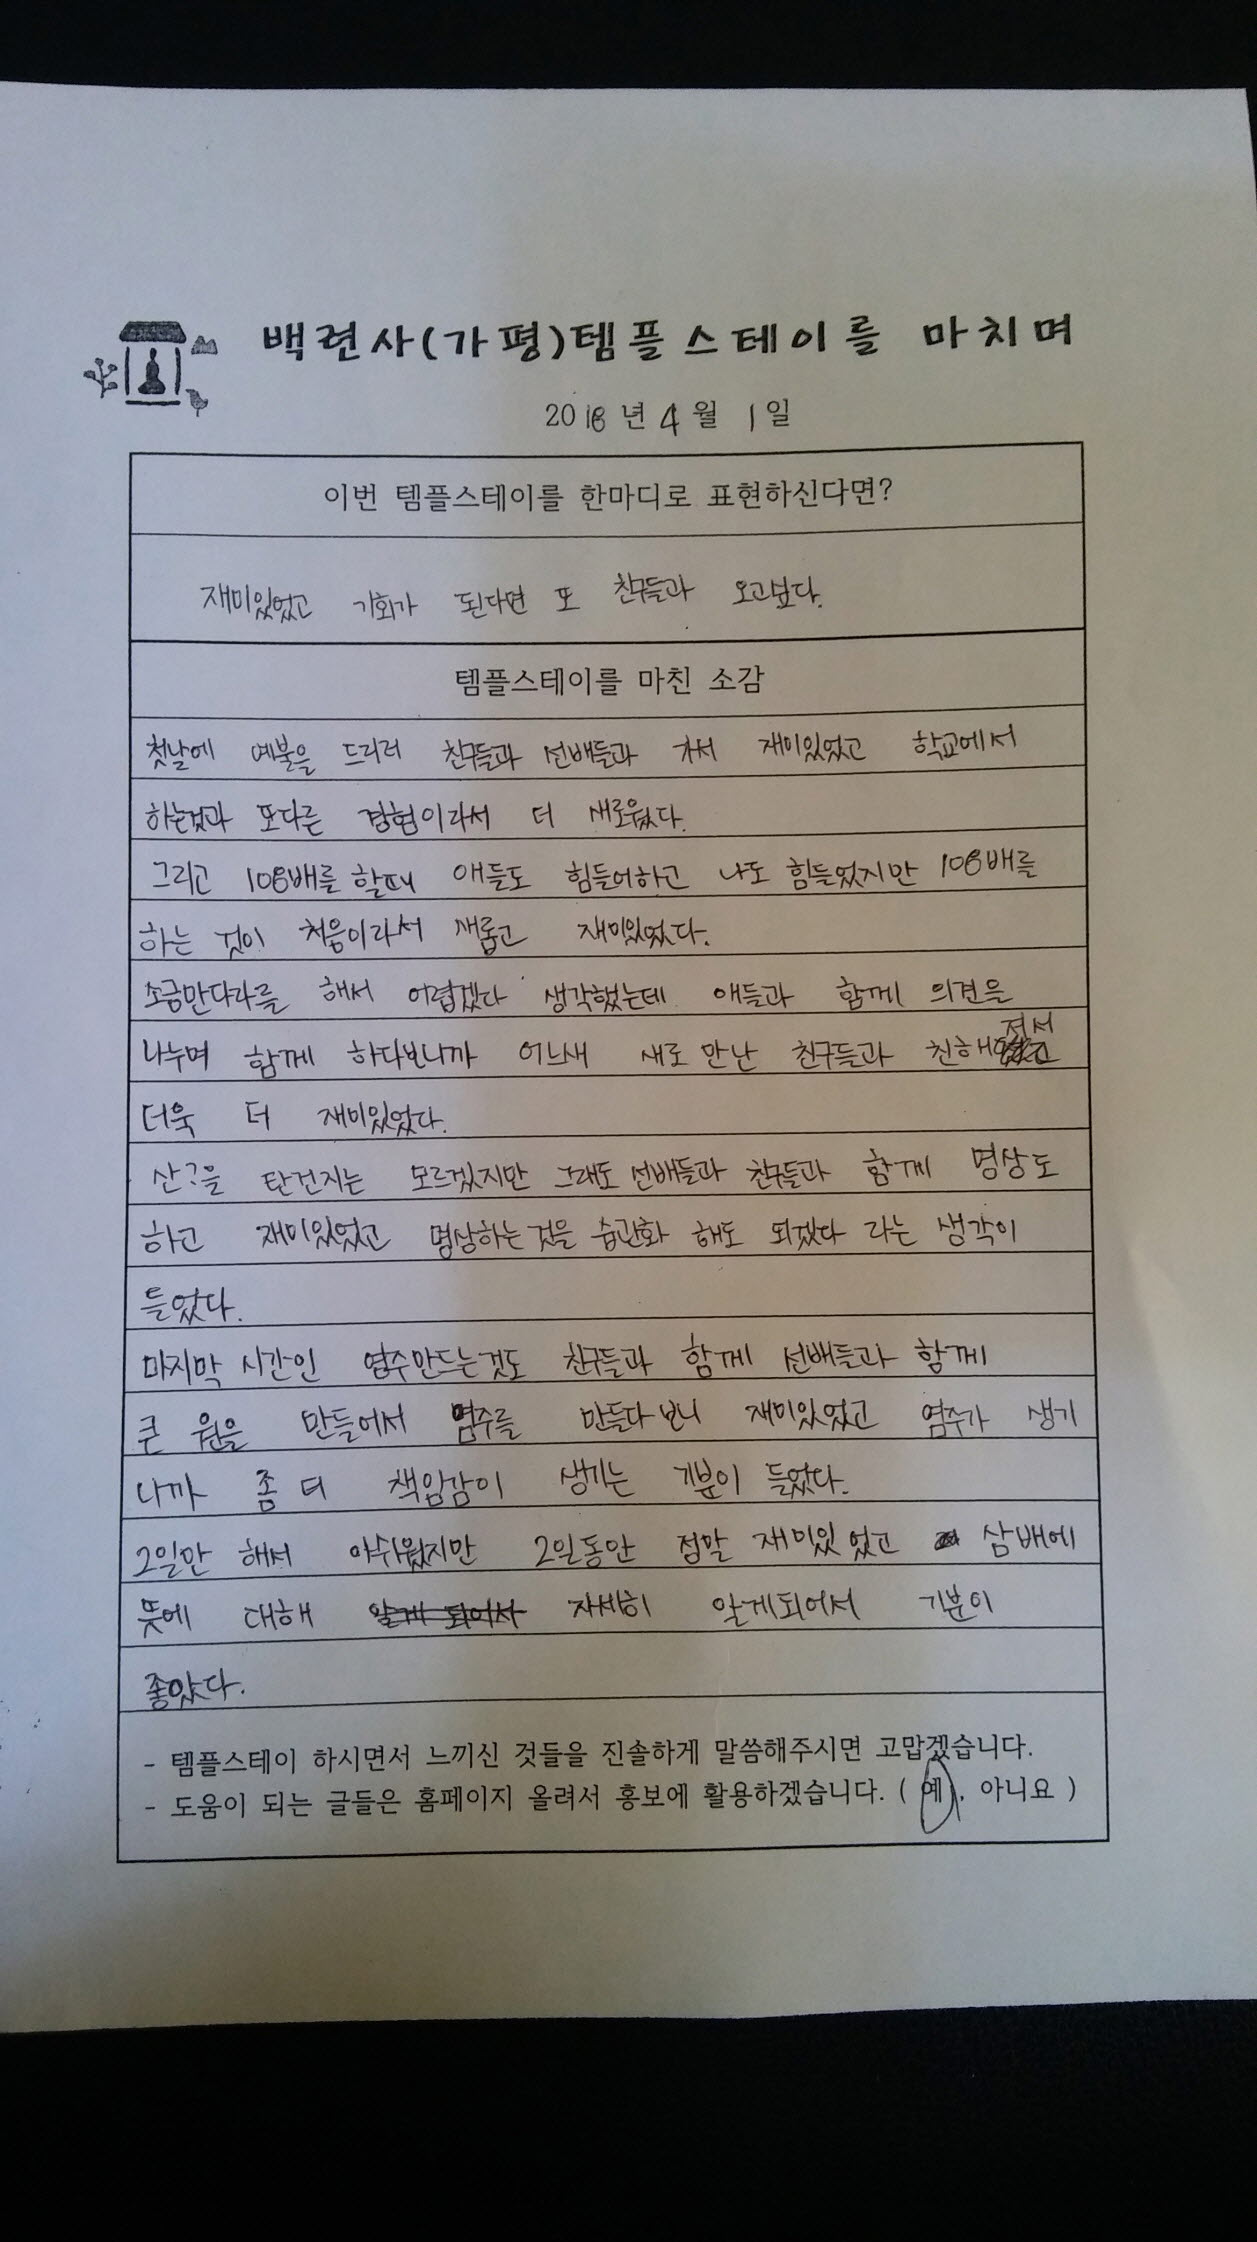 백련사(가평)템플스테이를 마치며
2018년 4월 1일
이번 템플스테이를 한마디로 표현하신다면?
재미있었고 기회가 된다면 또 친구들과 오고싶다.
템플스테이를 마친 소감
첫날에 예불을 드리러 친구들과 선배들과 가서 재미있었고 학교에서
하는것과 또다른 경험이라서 더 새로웠다.
그리고 108배를 할때 애들도 힘들어하고 나도 힘들었지만 108배를
하는 것이 처음이라서 새롭고 재미있었다.
소금만다라를 해서 어렵겠다 생각했는데 애들과 함께 의견을
나누며 함께 하다보니까 어느새 새로 만난 친구들과 친해져서
더욱 더 재미있었다.
산?을 탄건지는 모르겠지만 그래도 선배들과 친구들과 함께 명상도
하고 재미있었고 명상하는 것을 습관화 해도 되겠다 라는 생각이
들었다.
마지막 시간인 염주만드는것도 친구들과 함께 선배들과 함께
큰 원을 만들어서 염주를 만들다 보니 재미있었고 염주가 생기
나까 좀 더 책임감이 생기는 기분이 들었다.
2일만 해서 아쉬웠지만 2일동안 정말 재미있었고 삼배에
뜻에 대해 자세히 알게되어서 기분이
좋았다.
- 템플스테이 하시면서 느끼신 것들을 진솔하게 말씀해주시면 고맙겠습니다.
- 도움이 되는 글들은 홈페이지 올려서 홍보에 활용하겠습니다. ( 예 , 아니요 )